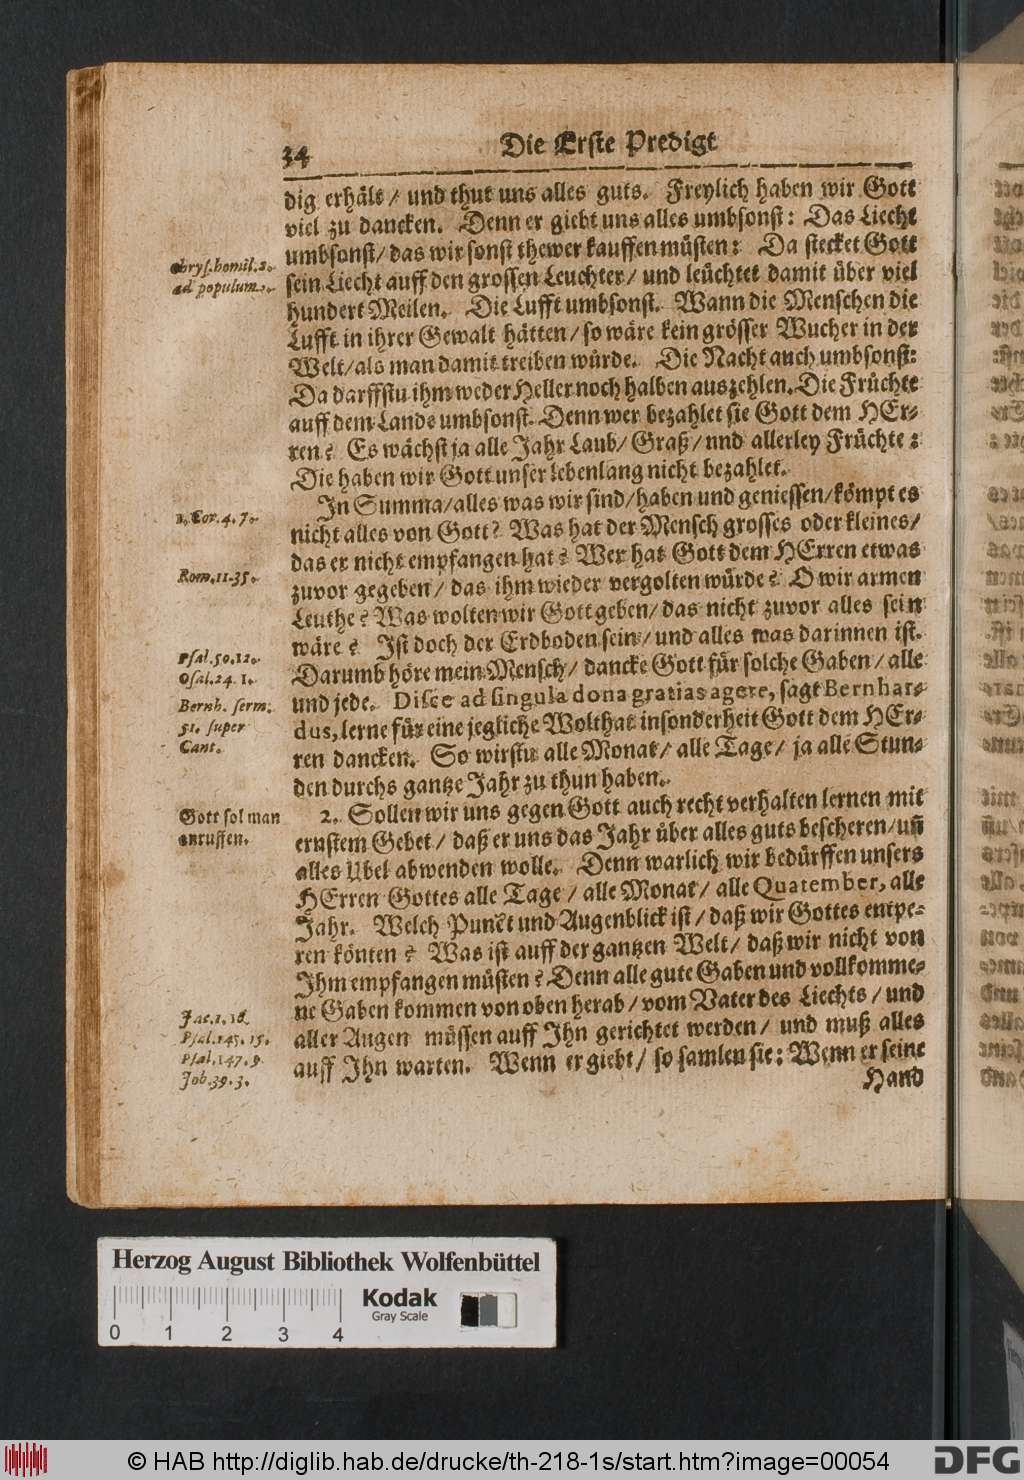 34
Die Erste Predigt
dig erhält / und thut uns alles guts. Freylich haben wir Gott
viel zu dancken. Denn er giebt uns alles umbsonst: Das Liecht
umbsonst / das wir sonst thewer kauffen müsten: Da stecket Gott
sein Liecht auff den grossen Leuchter / und leüchtet damit über viel
hundert Meilen. Die Lufft umbsonst. Wann die Menschen die
Lufft in ihrer Gewalt hätten / so wäre kein grösser Wucher in der
Welt / als man damit treiben würde. Die Nacht auch umbsonst:
Da darffstu ihm weder Heller noch halben auszehlen. Die Früchte
auff dem Lande umbsonst. Denn wer bezahlet sie Gott dem HEr-
ren? Es wächst ja alle Jahr Laub / Graß / nnd allerley Früchte:
Die haben wir Gott unser Lebenlang nicht bezahlet.
chrys. homil. 2.
ad populum.
In Summa / alles was wir sind / haben und geniessen / kömpt es
nicht alles von Gott? Was hat der Mensch grosses oder kleines /
das er nicht empfangen hat? Wer hat Gott dem HErren etwas
zuvor gegeben / das ihm wieder vergolten würde? O wir armen
Leuthe? Was wolten wir Gott geben / das nicht zuvor alles sein
wäre? Ist doch der Erdboden sein / und alles was darinnen ist.
Darumb höre mein Mensch / dancke Gott für solche Gaben / alle
und jede. Disce ad singula dona gratias agere, sagt Bernhar-
dus, lerne für eine jegliche Wolthat insonderheit Gott dem HEr-
ren dancken. So wirstu alle Monat / alle Tage / ja alle Stun-
den durchs gantze Jahr zu thun haben.
1. Cor. 4. 7.
Rom. 11. 35.
Psal. 50. 12.
Psal. 24. 1.
Bernh. serm.
51. super
Cant.
2. Sollen wir uns gegen Gott auch recht verhalten lernen mit
ernstem Gebet / daß er uns das Jahr über alles guts bescheren / uñ
alles Ubel abwenden wolle. Denn warlich wir bedürffen unsers
HErren Gottes alle Tage / alle Monat / alle Quatember, alle
Jahr. Welch Punct und Augenblick ist / daß wir Gottes entpe-
ren könten? Was ist auff der gantzen Welt / daß wir nicht von
Ihm empfangen müsten? Denn alle gute Gaben und vollkomme-
ne Gaben kommen von oben herab / vom Vater des Liechts / und
aller Augen müssen auff Ihn gerichtet werden / und muß alles
auff Ihn warten. Wenn er giebt / so samlen sie: Wenn er seine
Hand
Gott sol man
anruffen.
Jac. 1. 18.
Psal. 145. 15.
Psal. 147. 9.
Job. 39. 3.
Herzog August Bibliothek Wolfenbüttel
0 1 2 3 4
Kodak
Gray Scale
© HAB http://diglib.hab.de/drucke/th-218-1s/start.htm?image=00054
DFG